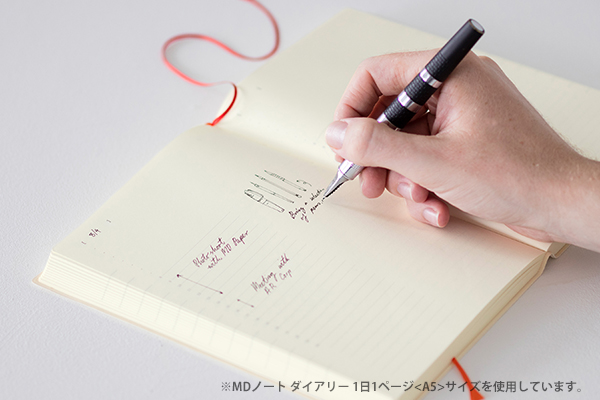 8/4
Bring a selection
of pens
Photo shoot
with MD Paper
Meeting with
A.R. Corp
※MDノート ダイアリー 1日1ページ<A5>サイズを使用しています。